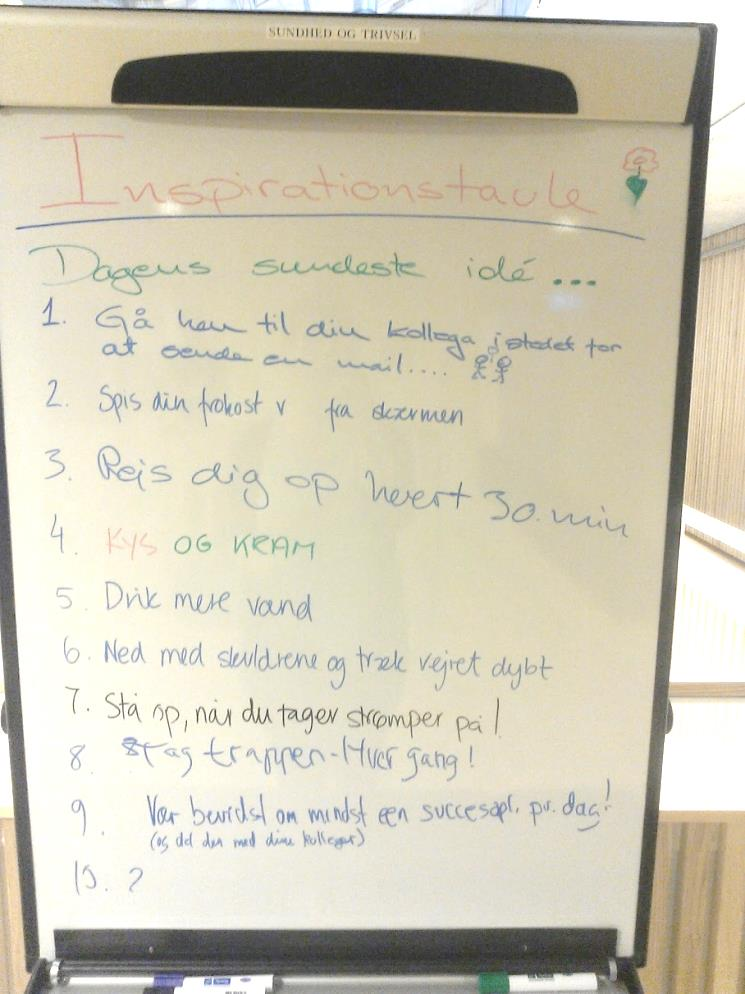 SUNDHED OG TRIVSEL
Inspirationstavle
Dagens sundeste idé...
1. Gå hen til din kollega istedet for
at sende en mail....
2. Spis din frokost v fra skærmen
3. Rejs dig op hvert 30. min
4. KYS OG KRAM
5. Drik mere vand
6. Ned med skuldrene og træk vejret dybt
7. Stå op, når du tager strømper på!
8. Tag trappen - Hver gang!
9. Vær bevidst om mindst een succesopl. pr. dag!
(og del den med dine kolleger)
10. ?